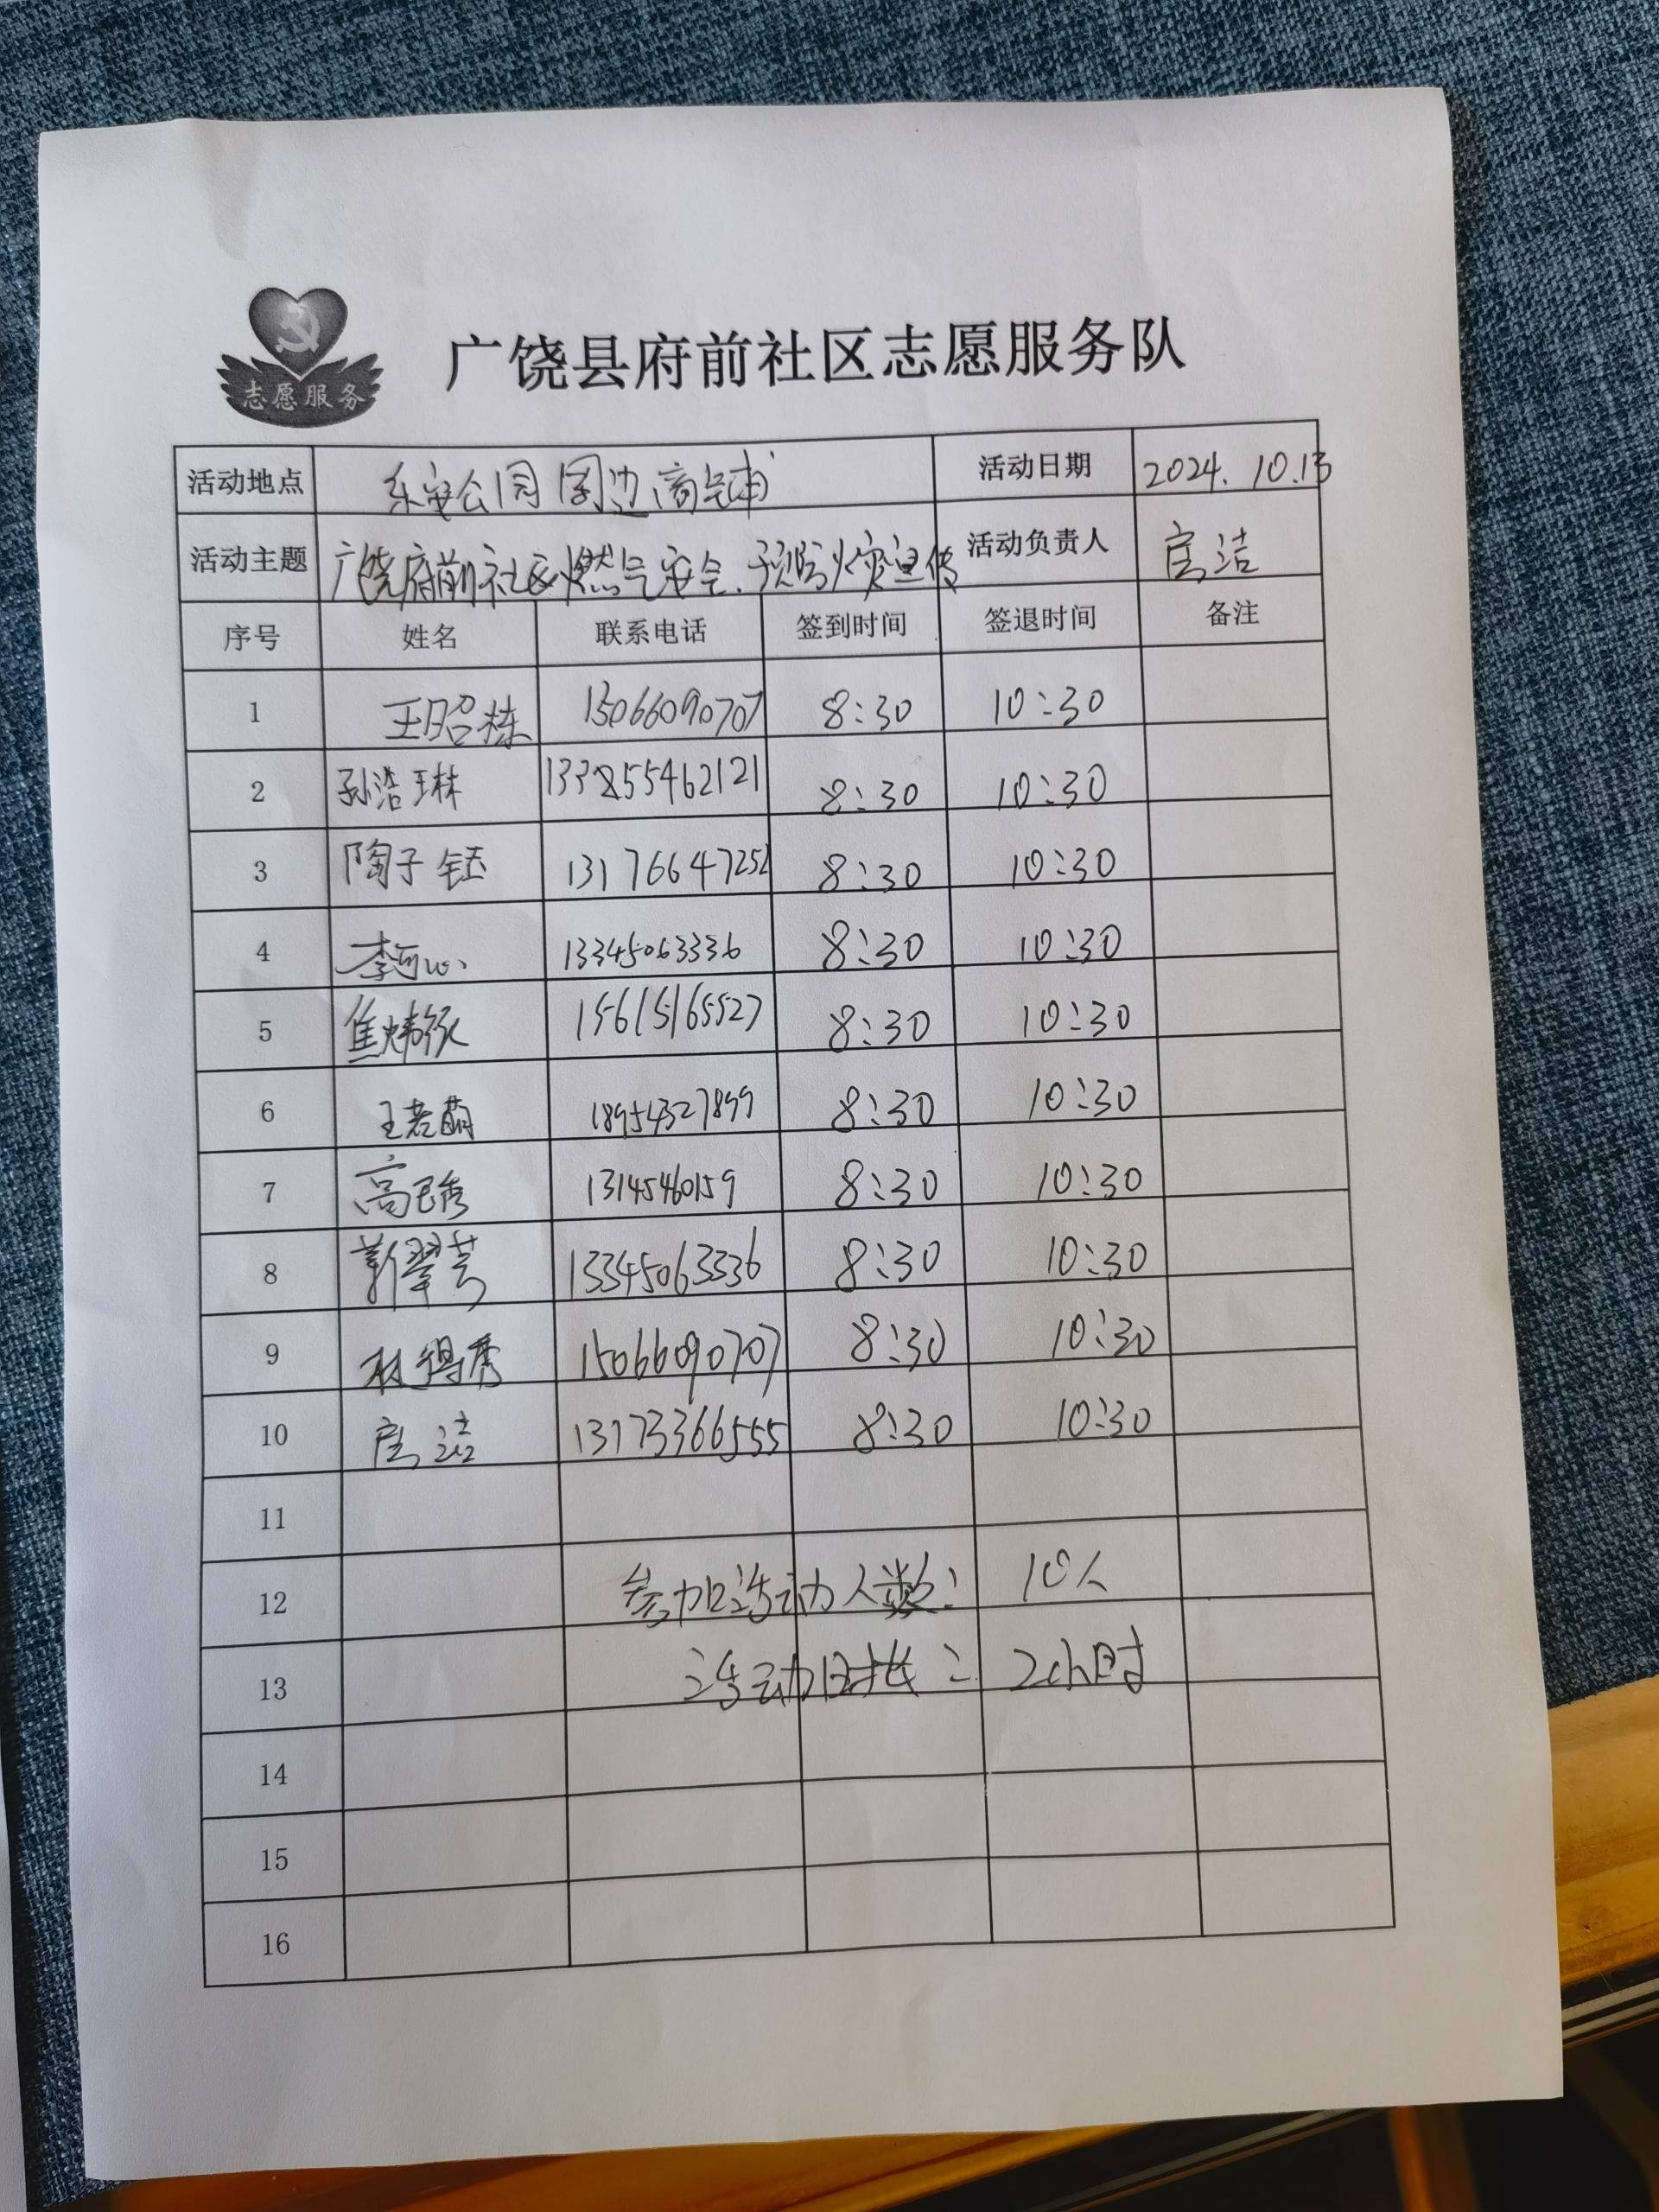 志愿服务
广饶县府前社区志愿服务队
活动地点 东安公园周边商铺 活动日期 2024.10.13
活动主题 广饶府前社区燃气安全、预防火灾宣传 活动负责人 官洁
序号 姓名 联系电话 签到时间 签退时间 备注
1 王昭栋 15066090707 8:30 10:30
2 孙浩琳 8:30 10:30
3 陶子钰 13176647252 8:30 10:30
4 李可心 13345063336 8:30 10:30
5 焦 15615165527 8:30 10:30
6 王若萌 18954327899 8:30 10:30
7 高 13145460159 8:30 10:30
8 靳翠芳 13345063336 8:30 10:30
9 得秀 15066090707 8:30 10:30
10 官洁 13173366555 8:30 10:30
11
12 参加活动人数: 10人
13 活动时长: 2小时
14
15
16